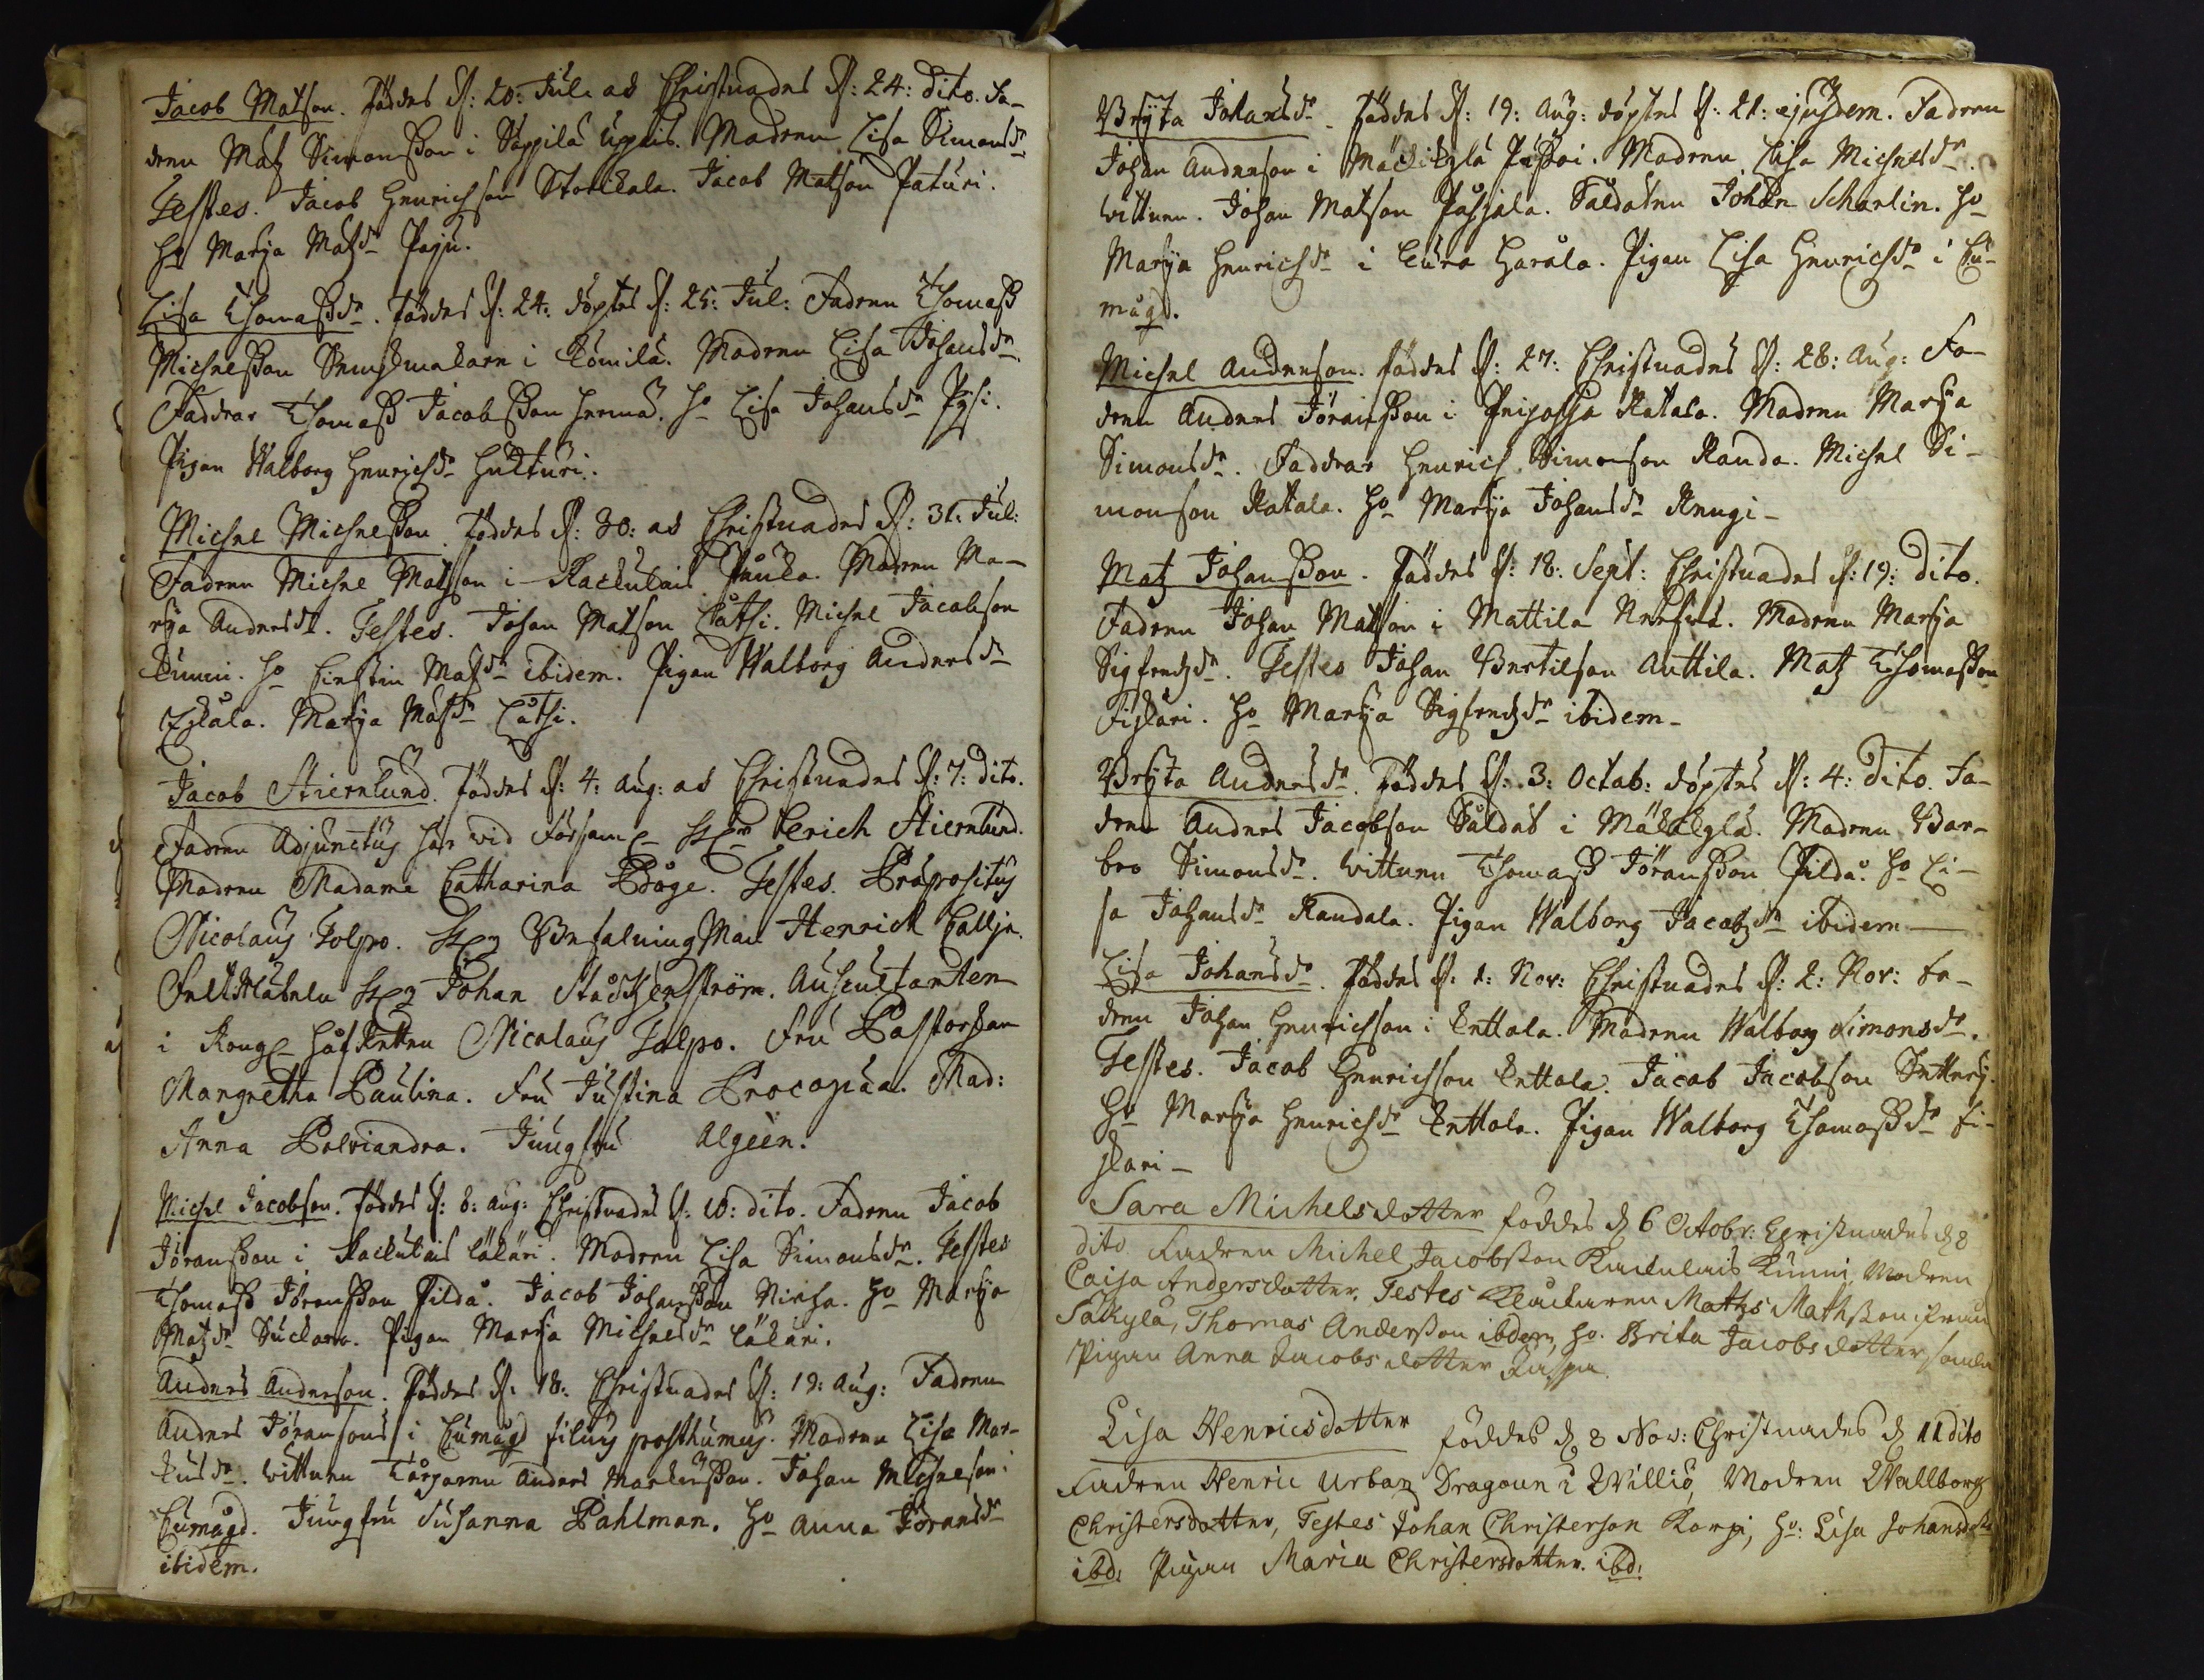 Jacob Matson. föddes d: 20: Jul: ac Christnades d: 24: dito. Fa-
dren Matz Simonsson i Säppilä Uppis. Modren Lisa Simonsdr
Testes. Jacob Henrichson Storckala. Jacob Matson Paturi.
Ho Marja Matzdr Paju.
Lisa Thomassdr. föddes d: 24: döptes d: 25: Jul: Fadren Thomass
Michelsson i Kömilä. Modren Lisa Johansdr.
Faddrar Thomass Jacobsson Hermä. Ho Lisa Johansdr Pysi.
Pigan Walborg Henrichsdr Hukturi.
Michel Michelsson. föddes d: 30: ac Christnades d: 31: Jul:
Fadren Michel Matson i Kackulais Pauka. Modren Ma-
rja Andersdr. Testes. Johan Matson Låtsi. Michel Jacobson
Kunni. Ho Kirstin Matzdr ibidem. Pigan Walborg Andersdr
Yskåla. Marja Matzdr Låtsi.
Jacob Stiernlund. föddes d: 4: Aug: ac Christnades d: 7: dito.
Fadren Adjunctus här vid Församl. Erich Stiernlund.
Modren Madama Catharina Båge. Testes. Præpositus
Nicolaus Tolpo. Befalnings Man Henrich Callja.
Johan Stackenström. Auscultanten
i Kongl. Håf Rätten Nicolaus Tolpo. Fru Pastorskan
Margretha Paulina. Fru Justina Procopæa. Mad:
Anna Polviandra. Jungfru Algeen.
Michel Jacobson. föddes d: 8: Aug: Christnades d: 10: dito. Fadren Jacob
Jöransson i Kackulais Läkäri. Modren Lisa Simonsdr. Testes
Thomass Jöransson Pilda. Jacob Johansson Nirha. Ho Marja
Matzdr Suckara. Pigan Marja Michelsdr Läkäri.
Anders Anderson. föddes d: 18: Christnades d: 19: Aug: Fadren
Anders Jöransons i Eumägd filius posthumus. Modren Lisa Mar-
kusdr. Wittnen Torparen Anders Markusson. Johan Michelson i
Eumägd. Jungfru Susanna Pahlman. Ho Anna Jöransdr
ibidem.
Bryta Johansdr. föddes d: 19: Aug: döptes d: 21: ejusdem. Fadren
Johan Anderson i Mäckikylä Pussoi. Modren Lisa Michelsdr.
Wittnen. Johan Matson Pohjala. Soldaten Johan Scharlin. Ho
Marja Henrichsdr i Eura Haråla. Pigan Lisa Henrichsdr i Eu-
mägd.
Michel Anderson. föddes d: 27: Christnades d: 28: Aug: Fa-
dren Anders Jöransson i Peipohja Katala. Modren Marja
Simonsdr. Faddrar Henrich Simonson Randa. Michel Si-
monson Katala. Ho Marja Johansdr Knugi-
Matz Johansson. föddes d: 18: Sept: Christnades d: 19: dito.
Fadren Johan Matson i Mattila. Modren Marja
Sigfredzdr. Testes Johan Bertilson Anttila. Matz Thomasson
Fiskari. Ho Marja Sigfredzdr ibidem-
Bryta Andersdr. föddes d: 3: Octob: döptes d: 4: dito. Fa-
dren Anders Jacobson Soldat i Mäkikylä. Modren Bar-
bro Simonsdr. Wittnen Thomass Jöransson Pilda. Ho Li-
sa Johansdr Randala. Pigan Walborg Jacobzdr ibidem
Lisa Johansdr. föddes d: 1: Nov: Christnades d: 2: Nov: Fa-
dren Johan Henrichsson i Enttala. Modren Walborg Simonsdr.
Testes. Jacob Henrichsson Enttala. Jacob Jacobson
Ho Marja Henrichsdr Enttala. Pigan Walborg Thomassdr Fi-
skari-
Sara Michelsdotter föddes d 6 Octobr: Christnades d 8
dito Fadren Michel Jacobsson Kackulais Kunni, Modren
Caisa Andersdotter, Testes Klåckaren Matths Mathsson ifrån
Säkylä, Thomas Andersson ibdem, Ho. Brita Jacobsdotter samt
Pigan Anna Jacobsdotter
Lisa Henricsdotter föddes d 8 Nov: Christnades d 11 dito
Fadren Henric Urban Dragoun i Willio, Modren Wallborg
Christersdotter, Testes Johan Christerson Korpi, Ho: Lisa Johansdott
ibd: Pigan Maria Christersdotter. ibd: